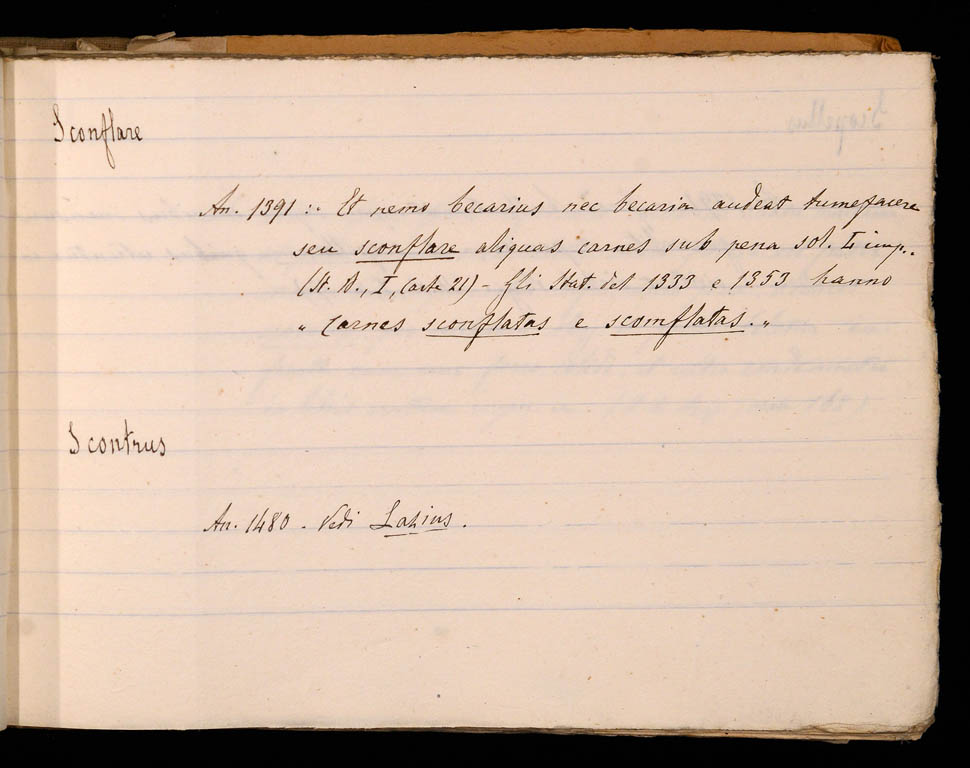 Sconflare
An. 1391 :. Et nemo becarius nec becaria audeat tumefacere
seu sconflare aliquas carnes sub pena sol. imp..
(St. D., I, Carte 21) - Gli Stat. del 1333 e 1353 hanno
" Carnes sconflatas e scomflatas. "
Scontrus
An. 1480 - Vedi Lazius.